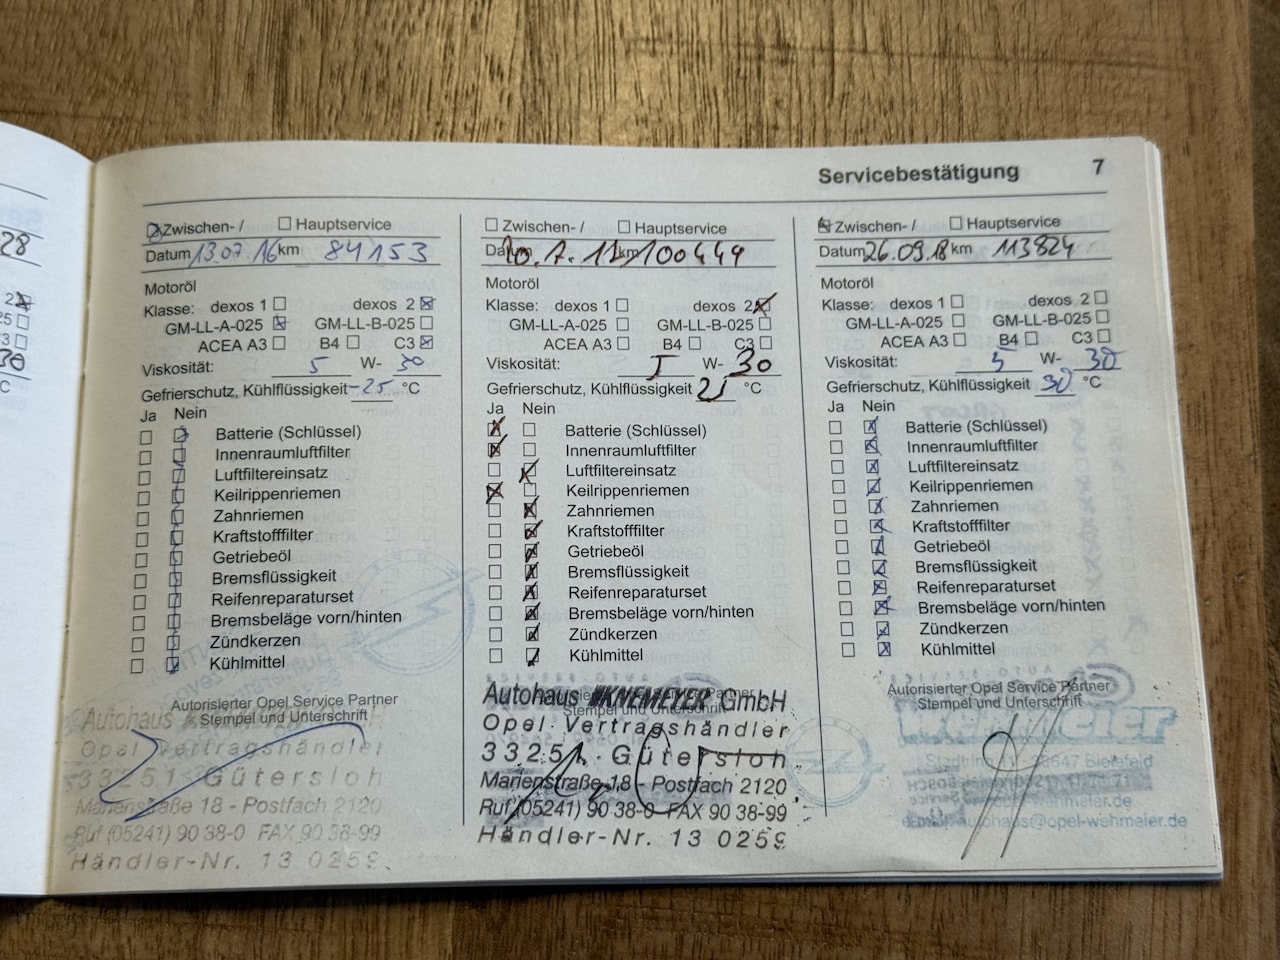 Servicebestätigung 7
28
30
C
Zwischen- / Hauptservice
Datum 13.07.16 km 84153
Motoröl
Klasse: dexos 1 dexos 2
GM-LL-A-025 GM-LL-B-025
ACEA A3 B4 C3
Viskosität: 5 W- 30
Gefrierschutz, Kühlflüssigkeit -25 °C
Ja Nein
Batterie (Schlüssel)
Innenraumluftfilter
Luftfiltereinsatz
Keilrippenriemen
Zahnriemen
Kraftstofffilter
Getriebeöl
Bremsflüssigkeit
Reifenreparaturset
Bremsbeläge vorn/hinten
Zündkerzen
Kühlmittel
Autorisierter Opel Service Partner
Stempel und Unterschrift
Autohaus
Opel Vertragshändler
33251 Gütersloh
Marienstraße 18 - Postfach 2120
Ruf (05241) 90 38-0 FAX 90 38-99
Händler-Nr. 13 0259
Zwischen- / Hauptservice
Datum km 100449
Motoröl
Klasse: dexos 1 dexos 2
GM-LL-A-025 GM-LL-B-025
ACEA A3 B4 C3
Viskosität: 5 W- 30
Gefrierschutz, Kühlflüssigkeit 25 °C
Ja Nein
Batterie (Schlüssel)
Innenraumluftfilter
Luftfiltereinsatz
Keilrippenriemen
Zahnriemen
Kraftstofffilter
Getriebeöl
Bremsflüssigkeit
Reifenreparaturset
Bremsbeläge vorn/hinten
Zündkerzen
Kühlmittel
Autorisierter Opel Service Partner
Stempel und Unterschrift
Autohaus KNEMEYER GmbH
Opel - Vertragshändler
33251 Gütersloh
Marienstraße 18 - Postfach 2120
Ruf (05241) 90 38-0 FAX 90 38-99
Händler-Nr. 13 0259
Zwischen- / Hauptservice
Datum 26.09.18 km 113824
Motoröl
Klasse: dexos 1 dexos 2
GM-LL-A-025 GM-LL-B-025
ACEA A3 B4 C3
Viskosität: 5 W- 30
Gefrierschutz, Kühlflüssigkeit 30 °C
Ja Nein
Batterie (Schlüssel)
Innenraumluftfilter
Luftfiltereinsatz
Keilrippenriemen
Zahnriemen
Kraftstofffilter
Getriebeöl
Bremsflüssigkeit
Reifenreparaturset
Bremsbeläge vorn/hinten
Zündkerzen
Kühlmittel
Autorisierter Opel Service Partner
Stempel und Unterschrift
Wehmeier
Bielefeld
opel-wehmeier.de
autohaus@opel-wehmeier.de